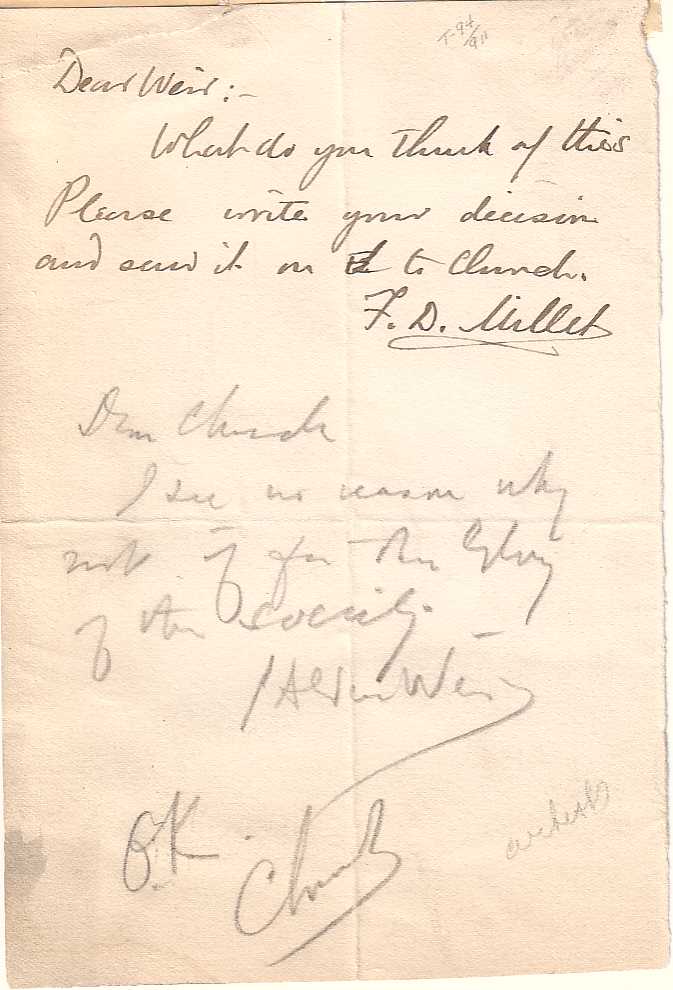 T-94/911
Dear Weir:-
What do you think of this
Please write your decision
and send it on to Church.
F. D. Millet
Dear Church
I see no reason why
not if for the Glory
of the Society.
J Alden Weir
O.K.
Church